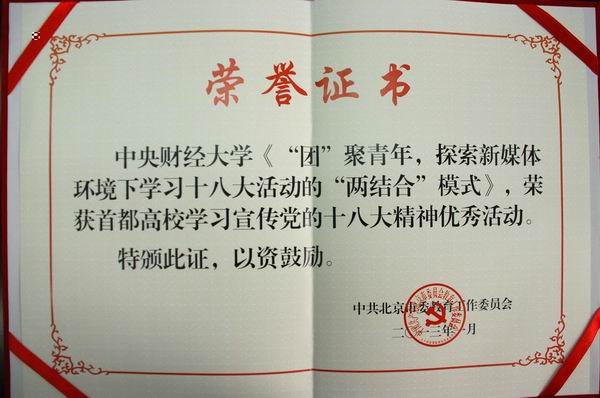 荣誉证书
中央财经大学《“团”聚青年，探索新媒体
环境下学习十八大活动的“两结合”模式》，荣
获首都高校学习宣传党的十八大精神优秀活动。
特颁此证，以资鼓励。
中共北京市委教育工作委员会
二〇一三年一月